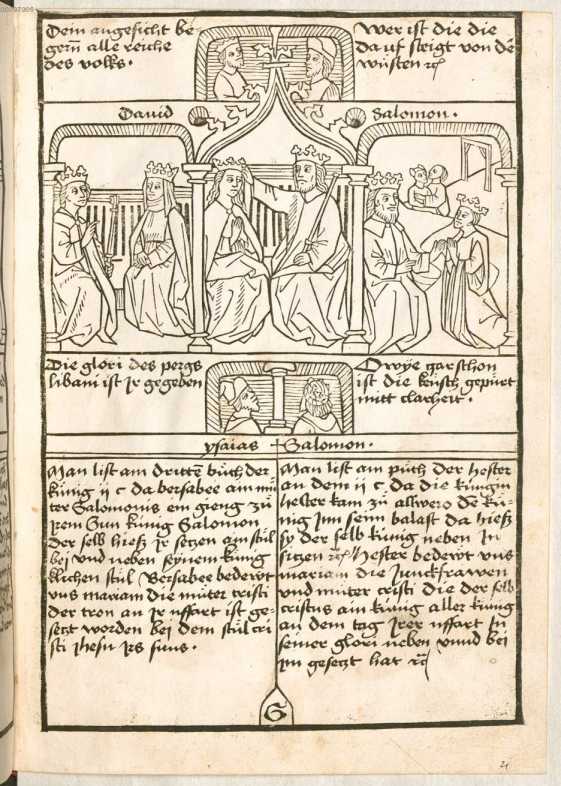 Dein angesicht be
gern̄ alle reiche
des volks·
Wer ist die die
da uf steigt von dē
wüsten rc̄
Dauid
Salomon·
Die glori des pergs
libani ist jr gegeben
O wÿe gar schon
ist die keüsch gepürt
mitt clarheit·
ysaias
Salomon·
Man list am drittē bůch der
künig ij c da bersabee am mů
ter Salomonis ein gieng zů
jrem Sun künig Salomon
der selb hieß jr setzen am stůl
bej vnd neben seynem künig
klichen stůl Bersabee bedewt
vns mariam die můter cristi
der tron an jr uffart ist ge-
setzt worden bej dem stůl cri
sti jhesu jrs suns·
Man list am půch der hester
an dem ij c da die küngin
hester kam zů allwero dē kü-
nig jnn seinn balast da hieß
sy der selb künig neben jn
sitzen rc̄ hester bedewt vns
mariam die junckfrawen
vnd můter cristi die der selb
cristus ain küng aller küng
an dem tag jrer uffart jn
seiner glori neben vnnd bej
jm gesetzt hat rc̄
S